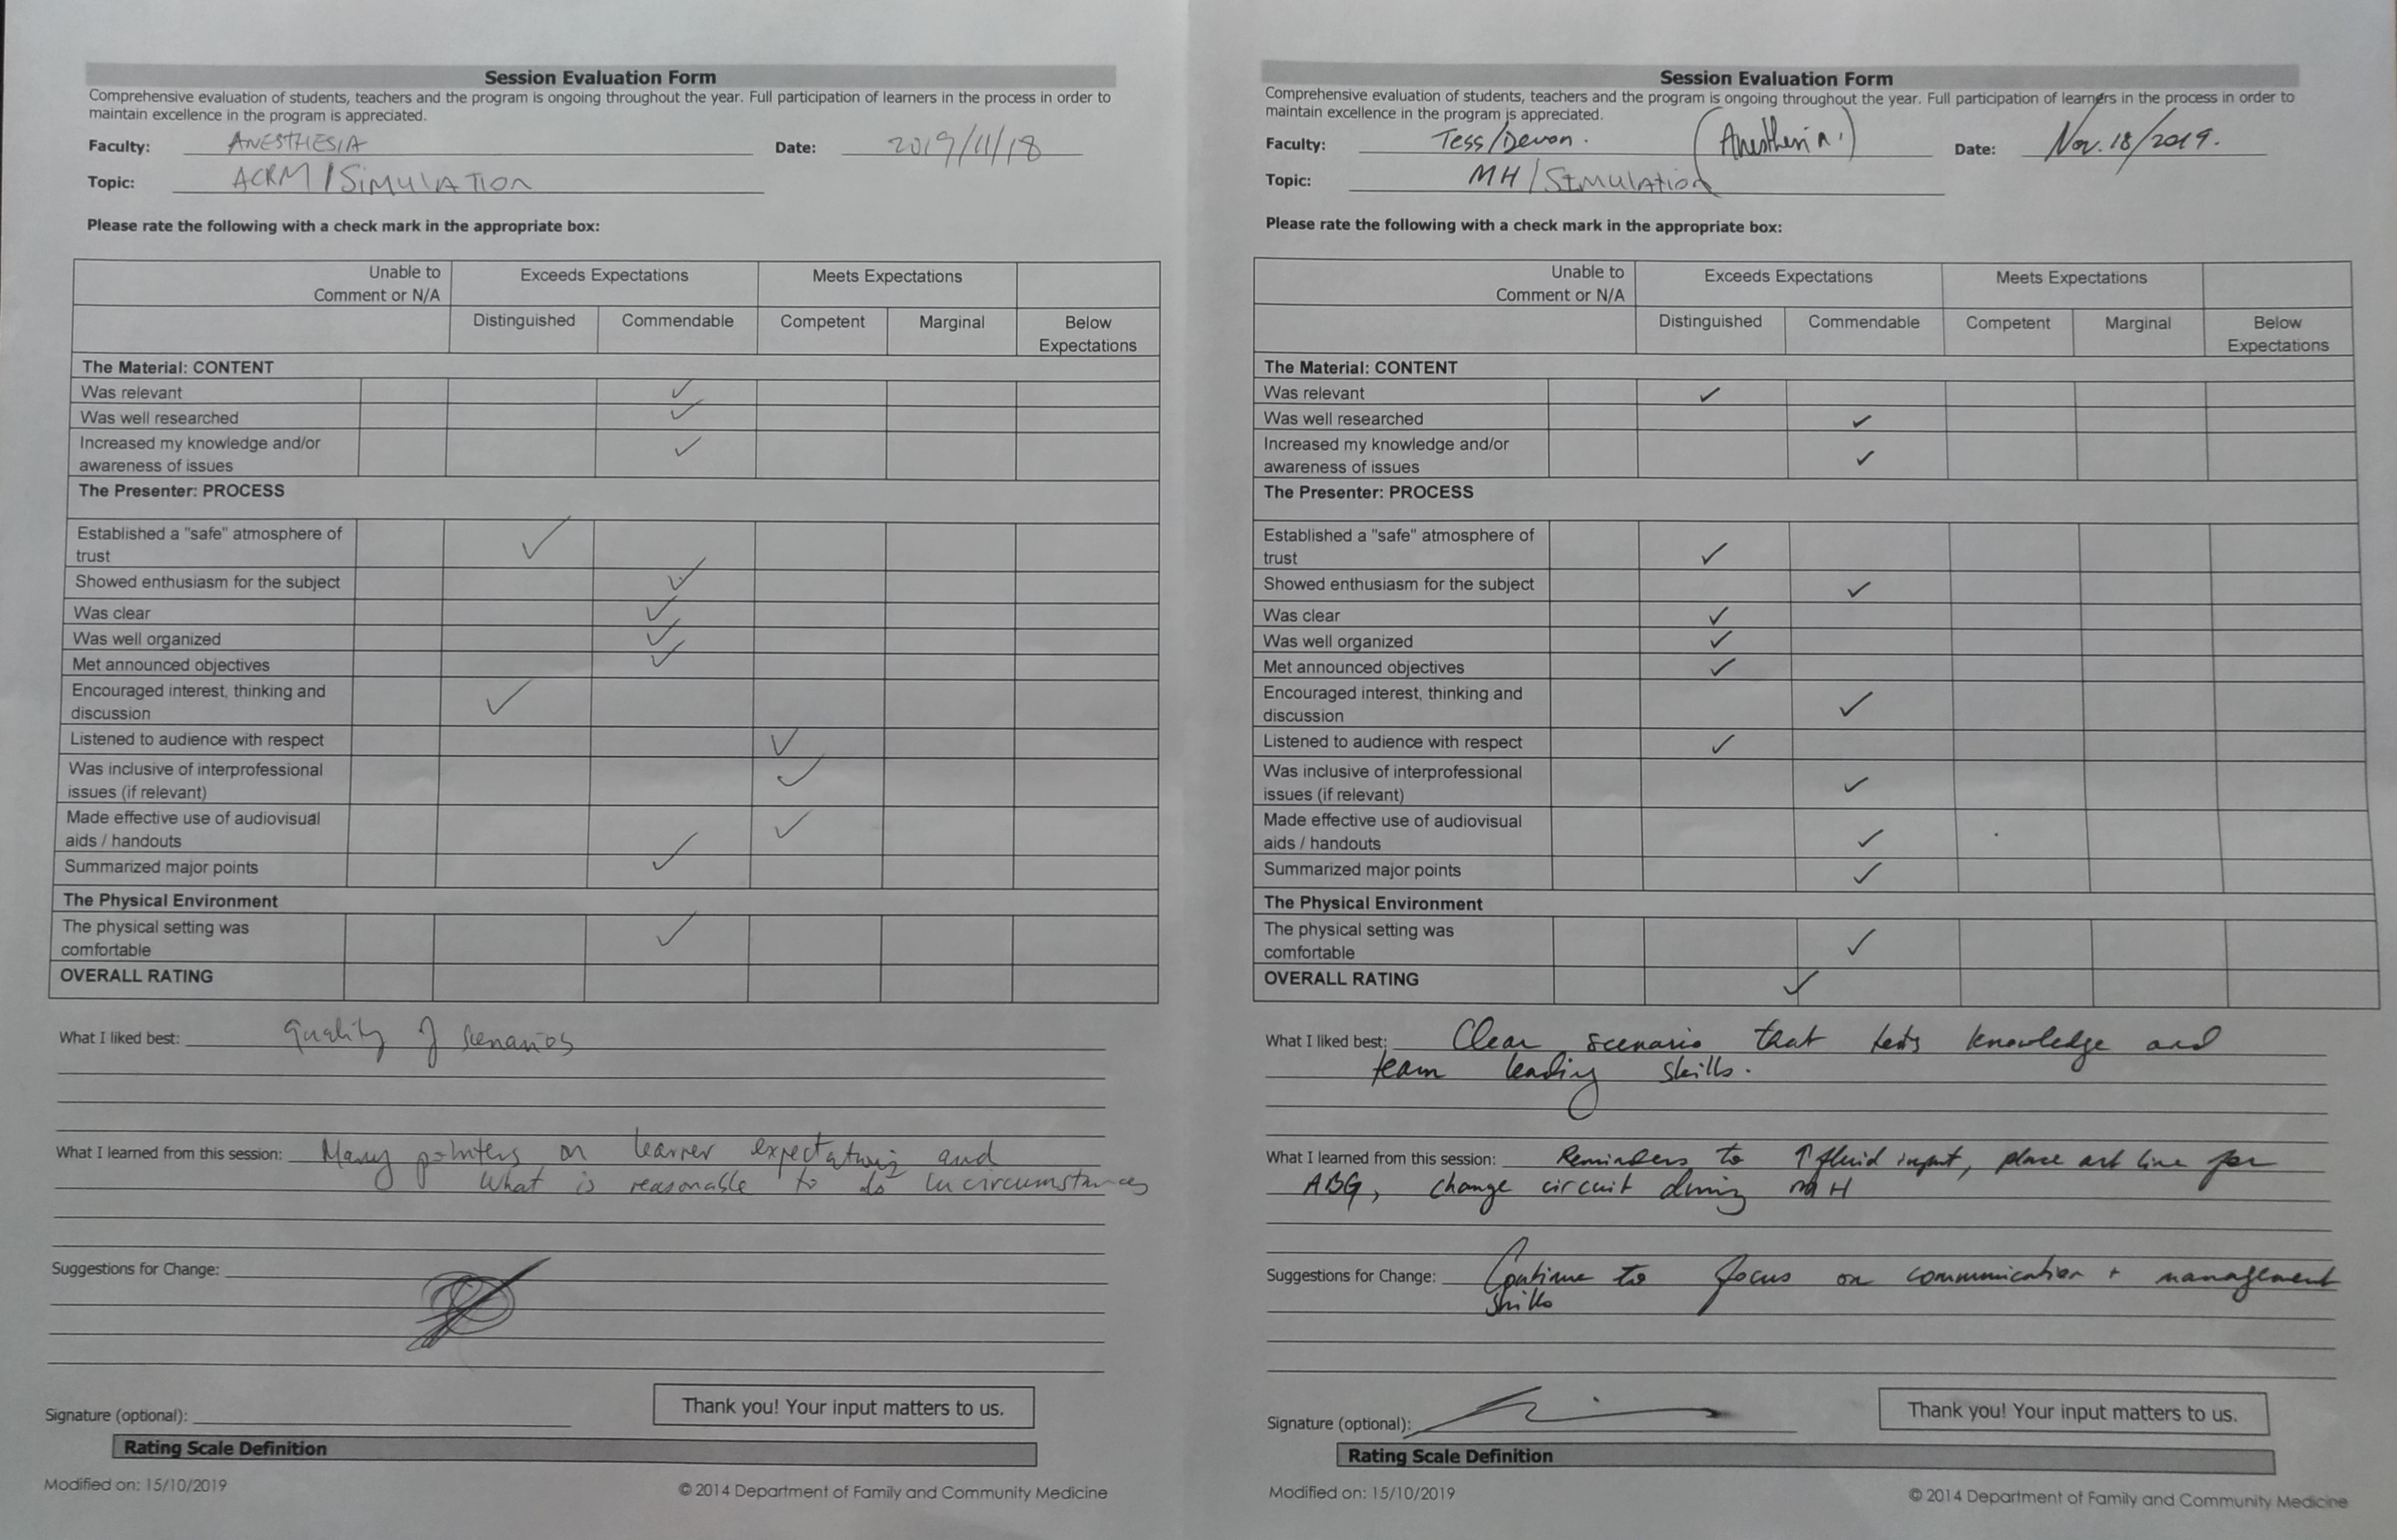 Session Evaluation Form
Comprehensive evaluation of students, teachers and the program is ongoing throughout the year. Full participation of learners in the process in order to
maintain excellence in the program is appreciated.
Faculty: ANESTHESIA Date: 2019/11/18
Topic: ACRM / SIMULATION
Please rate the following with a check mark in the appropriate box:
Unable to Exceeds Expectations Meets Expectations
Comment or N/A
Distinguished Commendable Competent Marginal Below
Expectations
The Material: CONTENT
Was relevant ✓
Was well researched ✓
Increased my knowledge and/or ✓
awareness of issues
The Presenter: PROCESS
Established a "safe" atmosphere of ✓
trust
Showed enthusiasm for the subject ✓
Was clear ✓
Was well organized ✓
Met announced objectives ✓
Encouraged interest, thinking and ✓
discussion
Listened to audience with respect ✓
Was inclusive of interprofessional ✓
issues (if relevant)
Made effective use of audiovisual ✓
aids / handouts
Summarized major points ✓
The Physical Environment
The physical setting was ✓
comfortable
OVERALL RATING
What I liked best: Quality of scenarios
What I learned from this session: Many pointers on learner expectations and
what is reasonable to do in circumstances
Suggestions for Change:
Signature (optional):
Thank you! Your input matters to us.
Rating Scale Definition
Modified on: 15/10/2019 © 2014 Department of Family and Community Medicine
Session Evaluation Form
Comprehensive evaluation of students, teachers and the program is ongoing throughout the year. Full participation of learners in the process in order to
maintain excellence in the program is appreciated.
Faculty: Tess/Devon. (Anesthesia.) Date: Nov. 18/2019.
Topic: MH / SIMULATION
Please rate the following with a check mark in the appropriate box:
Unable to Exceeds Expectations Meets Expectations
Comment or N/A
Distinguished Commendable Competent Marginal Below
Expectations
The Material: CONTENT
Was relevant ✓
Was well researched ✓
Increased my knowledge and/or ✓
awareness of issues
The Presenter: PROCESS
Established a "safe" atmosphere of ✓
trust
Showed enthusiasm for the subject ✓
Was clear ✓
Was well organized ✓
Met announced objectives ✓
Encouraged interest, thinking and ✓
discussion
Listened to audience with respect ✓
Was inclusive of interprofessional ✓
issues (if relevant)
Made effective use of audiovisual ✓
aids / handouts
Summarized major points ✓
The Physical Environment
The physical setting was ✓
comfortable
OVERALL RATING ✓
What I liked best: Clear scenario that tests knowledge and
team leading skills.
What I learned from this session: Reminders to ↑ fluid input, place art line for
ABG, change circuit during MH
Suggestions for Change: Continue to focus on communication + management
skills
Signature (optional):
Thank you! Your input matters to us.
Rating Scale Definition
Modified on: 15/10/2019 © 2014 Department of Family and Community Medicine